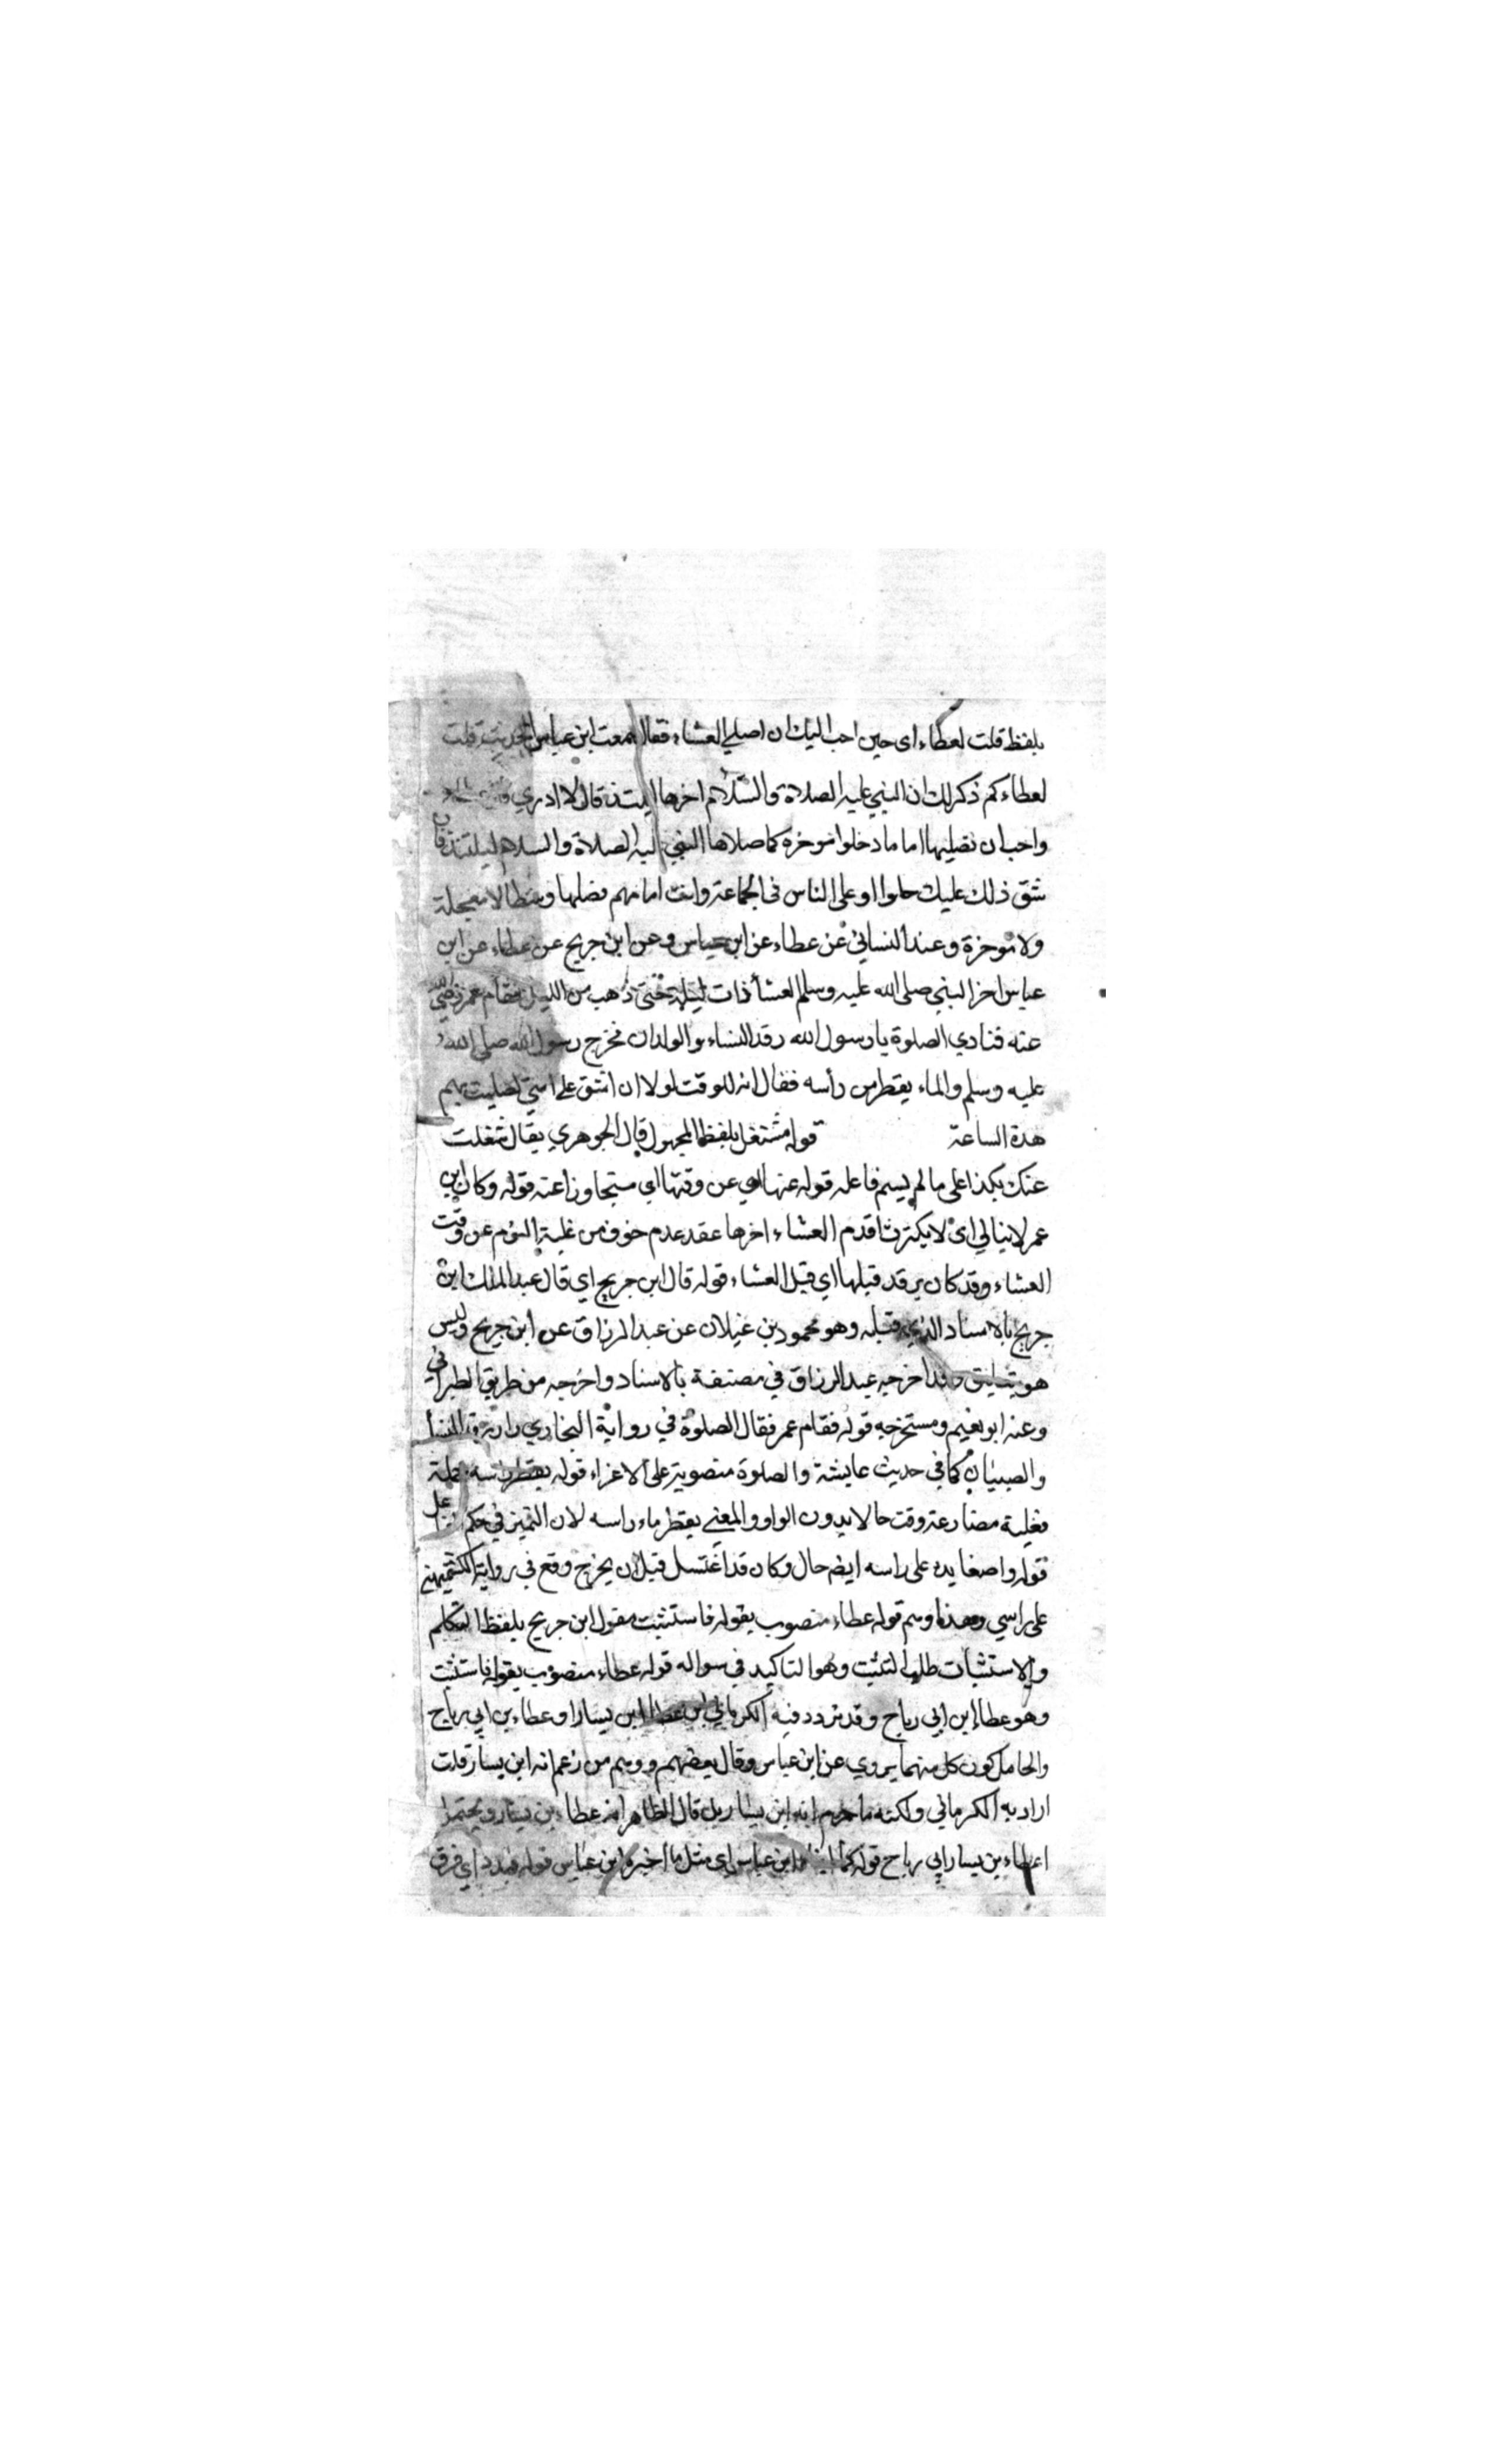 بلفظ قلت لعطاء اى حين احب اليك ان اصلي العشاء فقال سمعت ابن عباس الحديث قلت
لعطاء كم ذكر لك ان النبي عليه الصلاة والسّلام اخرها ليلتئذ قال لا ادري
واحب ان تصليها اماما دخلوا موخرة كما صلاها النبي عليه الصلاة والسلام ليلتئذ فان
شق ذلك عليك حلوا او على الناس فى الجماعة وانت امامهم فصلها وسطا لا معجلة
ولا موخرة وعند النسائي عن عطاء عن ابن عباس وعن ابن جريج عن عطاء عن ابن
عباس اخر النبي صلى الله عليه وسلم العشأ ذات ليلة حتى ذهب من الليل فقام عمر رضي الله
عنه فنادي الصلوة يا رسول الله رقد النساء والولدان فخرج رسول الله صلى الله
عليه وسلم والماء يقطر من رأسه فقال انه للوقت لولا ان اشق على امتي لصليت بهم
هذة الساعة قوله شغل بلفظ المجهول قال الجوهري يقال شغلت
عنك بكذا على ما لم يسم فاعله قوله عنها اي عن وقتها اي متجاوزا عنه قوله وكان ابن
عمر لا يبالي اى لا يكترث اقدم العشاء اخرها عقد عدم خوف من غلبة النوم عن وقت
العشاء وقد كان يرقد قبلها اي قبل العشاء قوله قال ابن جريج اي قال عبد الملك ابن
جريج بالاسناد الذي قبله وهو محمود بن غيلان عن عبد الرزاق عن ابن جريج وليس
هو بتعليق وقد اخرجه عبد الرزاق في مصنفة بالاسناد واخرجه من طريق الطبراني
وعنه ابو نعيم ومستخرجه قوله فقام عمر فقال الصلوة في رواية البخاري رقد النسأ
والصبيان كما في حديث عايشة والصلوة منصوبة على الاغراء قوله يقطر راسه جملة
فعلية مضارعة وقت حالا بدون الواو والمعني يقطر ماء راسه لان التميز في حكم الفاعل
قوله واضعا يده على راسه ايضم حال وكان قد اغتسل قبل ان يخرج وقع في رواية الكشميهني
على راسي وهذا وهم قوله عطاء منصوب بقوله فاستثبت مقول ابن جريج بلفظ التكلم
والاستثبات طلب التثبت وهو التاكيد في سواله قوله عطاء منصوب بقوله فاستثبت
وهو عطا ابن ابي رباح وقد تردد فيه الكرماني بين عطا ابن يسار او عطاء بن ابي رباح
والحامل كون كل منهما يروي عن ابن عباس وقال بعضهم ووهم من زعم انه ابن يسار قلت
اراد به الكرماني ولكنه ما جزم انه ابن يسار بل قال الظاهر انه عطاء بن يسار ويحتمل
اعطاء بن يسار ابي رباح قوله كما ابن عباس اي مثل ما اخبره ابن عباس قوله فبدد اي فرق